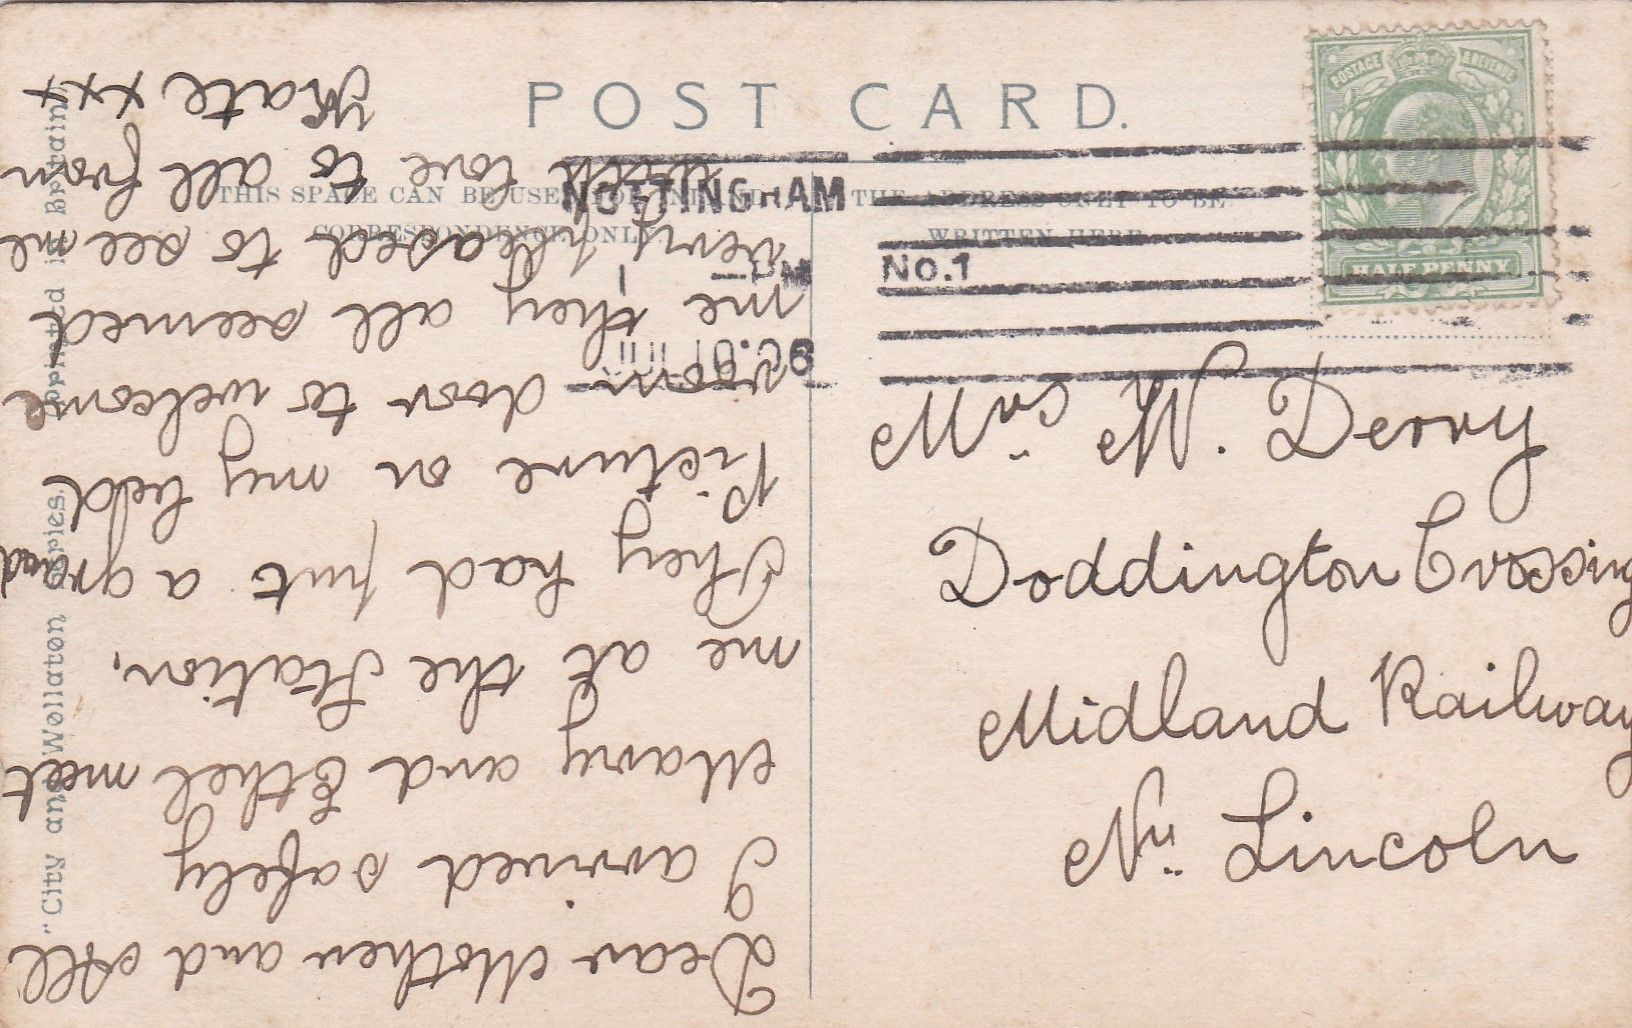 POST CARD.
THIS SPACE CAN BE USED
CORRESPONDENCE ONLY
THE ADDRESS ONLY TO BE
WRITTEN HERE
"City and Wollaton Series. Printed in Britain
POSTAGE & REVENUE
HALF PENNY
NOTTINGHAM
No.1
PM
Dear Mother and All
I arrived safely
Mary and Ethel meet
me at the Station,
They had put a grand
Picture on my bed
room door to welcome
me they all seemed
very pleased to see me
with love to all from
Kate xxx
Mrs. W. Derry
Doddington Crossing
Midland Railway
Nr. Lincoln